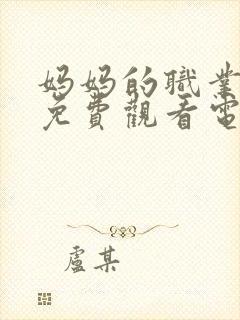 妈妈的職業
免費觀看電
盧某